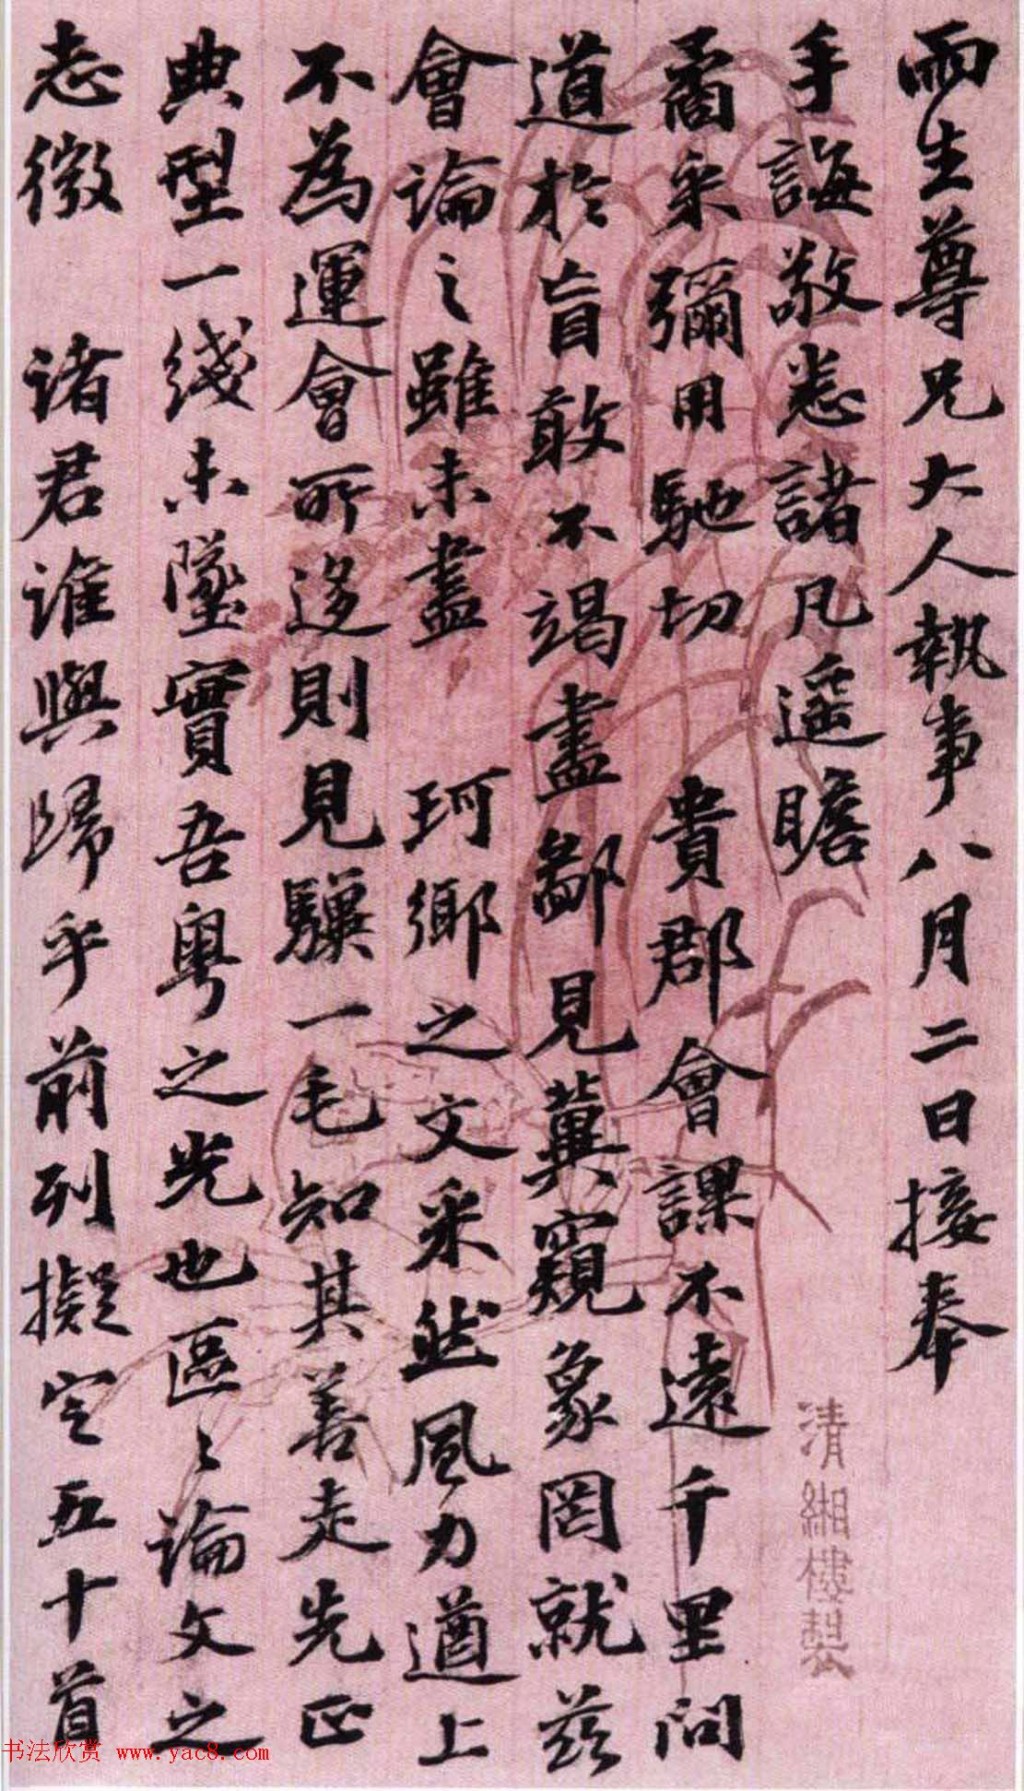 雨生尊兄大人執事八月二日接奉
手誨敬悉諸凡遥瞻
矞采彌用馳切 貴郡會課不遠千里問
道於盲敢不竭盡鄙見蓂窺象罔就茲
會論之雖未盡 珂鄉之文采然風力遒上
不為運會所迻則見驥一毛知其善走先正
典型一綫未墜實吾粵之光也區〻論文之
志微 诸君谁與歸乎前列擬定五十首
清緗樓製
书法欣赏 www.yac8.com